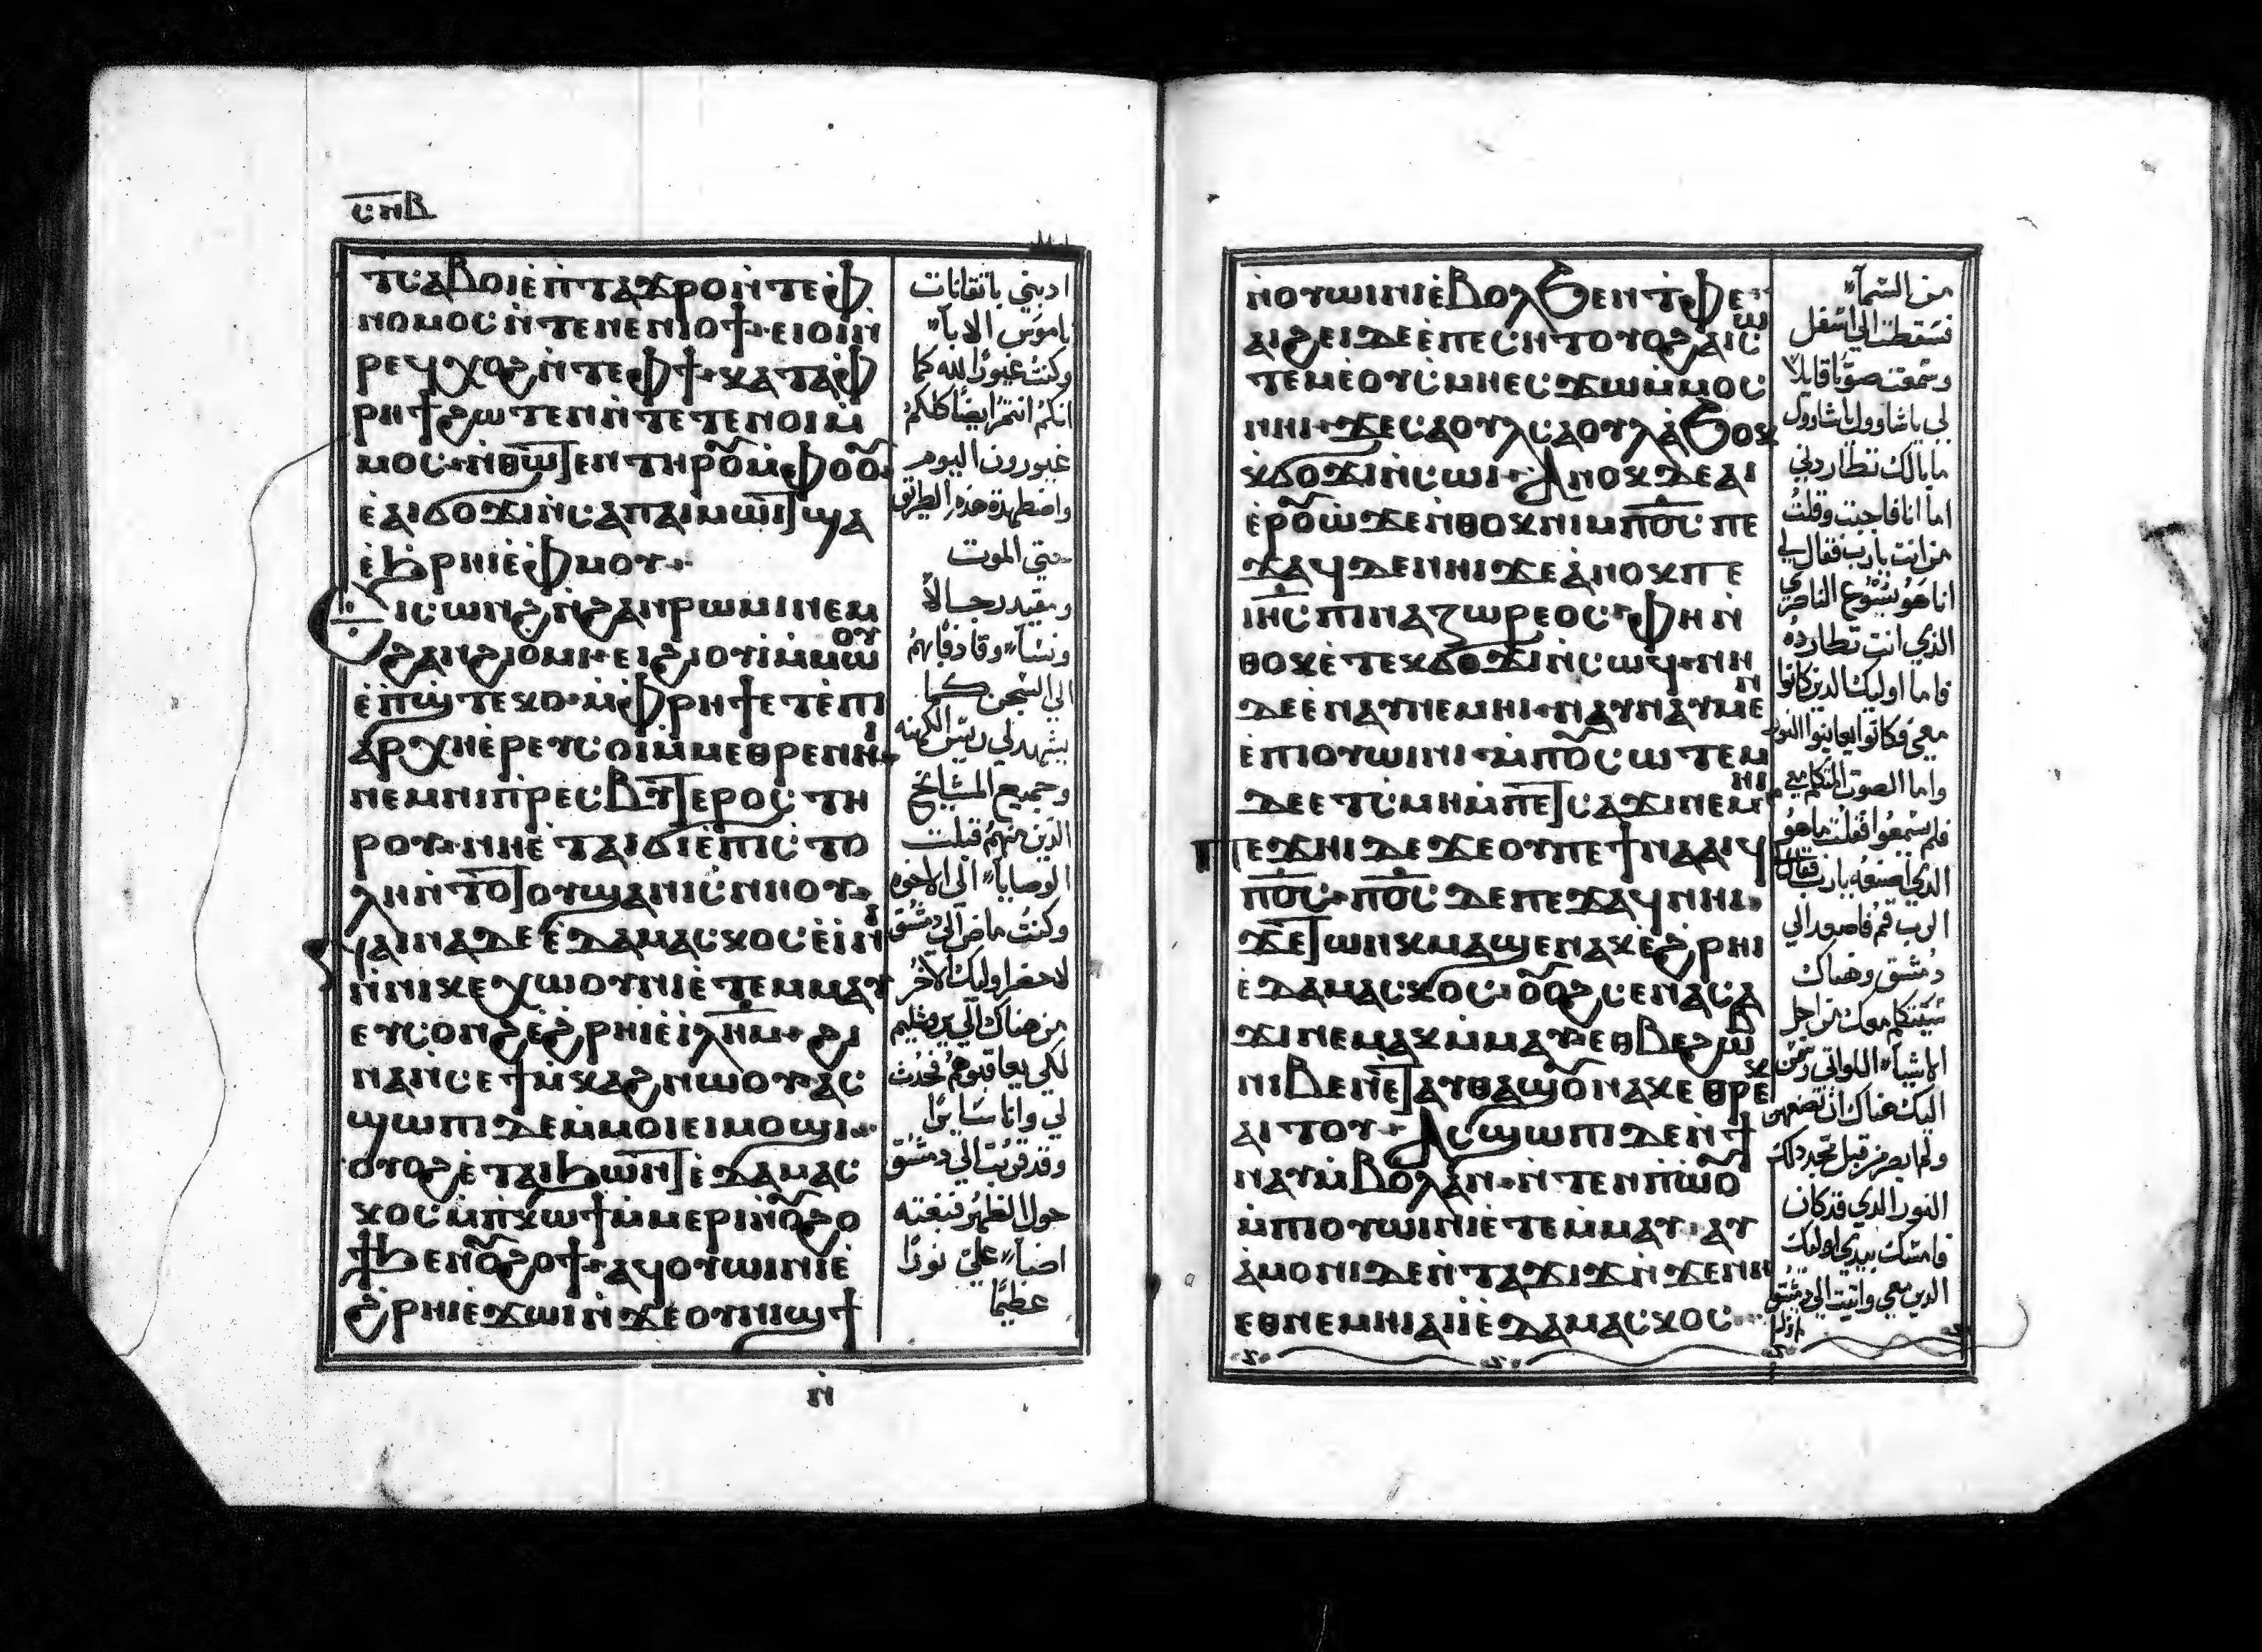 ⲥⲛⲃ
ⲧⲥⲁⲃⲟⲓ ⲉ̀ⲡⲧⲁϫⲣⲟ ⲛ̀ⲧⲉ ⲫ
ⲛⲟⲙⲟⲥ ⲛ̀ⲧⲉ ⲛⲉⲛⲓⲟϯ ⲉⲓⲟⲓ ⲛ̀
ⲣⲉϥⲭⲟϩ ⲛ̀ⲧⲉ ⲫϯ ⲕⲁⲧⲁ ⲫ
ⲣⲏϯ ϩⲱⲧⲉⲛ ⲛ̀ⲧⲉⲧⲉⲛⲟⲓ ⲙ̀
ⲙⲟⲥ ⲛ̀ⲑⲱⲧⲉⲛ ⲧⲏⲣⲟⲩ ⲙ̀ⲫⲟⲟⲩ
ⲉ̀ⲁⲓϭⲟϫⲓ ⲛ̀ⲥⲁ ⲡⲁⲓⲙⲱⲓⲧ ϣⲁ
ⲉ̀ϧⲣⲏⲓ ⲉ̀ⲫⲙⲟⲩ
ⲉⲓⲥⲱⲛϩ ⲛ̀ϩⲁⲛⲣⲱⲙⲓ ⲛⲉⲙ
ϩⲁⲛϩⲓⲟⲙⲓ ⲉⲓϩⲓⲟⲩⲓ ⲙ̀ⲙⲱⲟⲩ
ⲉ̀ⲡϣⲧⲉⲕⲟ ⲙ̀ⲫⲣⲏϯ ⲉⲧⲉ ⲡⲓ
ⲁⲣⲭⲏⲉ̀ⲣⲉⲩⲥ ⲟⲓ ⲙ̀ⲙⲉⲑⲣⲉ ⲛⲏⲓ
ⲛⲉⲙ ⲛⲓⲡⲣⲉⲥⲃⲩⲧⲉⲣⲟⲥ ⲧⲏ
ⲣⲟⲩ ⲛⲏ ⲉ̀ⲧⲁⲓϭⲓ ⲉ̀ⲡⲓⲥⲧⲟ
ⲗⲏ ⲛ̀ⲧⲟⲧⲟⲩ ϣⲁ ⲛⲓⲥⲛⲏⲟⲩ
ⲛⲁⲓⲛⲁ ⲇⲉ ⲉ̀ⲇⲁⲙⲁⲥⲕⲟⲥ ⲉ̀ⲓ̀ⲛⲓ
ⲛ̀ⲛⲓⲕⲉⲭⲱⲟⲩⲛⲓ ⲉ̀ⲧⲉⲙⲙⲁⲩ
ⲉⲩⲥⲟⲛϩ ⲉ̀ϩⲣⲏⲓ ⲉ̀ⲓ̀ⲗⲏⲙ ϩⲓ
ⲛⲁ ⲛ̀ⲥⲉϯⲙⲕⲁϩ ⲛⲱⲟⲩ ⲁⲥ
ϣⲱⲡⲓ ⲇⲉ ⲙ̀ⲙⲟⲓ ⲉⲓⲙⲟϣⲓ
ⲟⲩⲟϩ ⲉ̀ⲧⲁⲓϧⲱⲛⲧ ⲉ̀ⲇⲁⲙⲁⲥ
ⲕⲟⲥ ⲙ̀ⲡⲕⲱϯ ⲙ̀ⲙⲉⲣⲓ ⲛ̀ⲟⲩϩⲟ
ϯ ϧⲉⲛ ⲟⲩϩⲟϯ ⲁϥⲟⲩⲱⲓⲛⲓ ⲉ̀
ϩⲣⲏⲓ ⲉ̀ϫⲱⲓ ⲛ̀ϫⲉ ⲟⲩⲛⲓϣϯ
ⲛ̀
ادبني باتقانات
ناموس الابآ
وكنت غيورًا لله كما
انكم انتم ايضًا كلكم
غيورون اليوم
واضطهدة هذه الطريق
حتي الموت
ومقيد رجالاً
ونسآ وقاذفاياهم
الي السجن كما
يشهد لي ريس الكهنه
وجميع المشايخ
الذين منهم قبلت
الوصايآ الي الاخوه
وكنت ماض الي دمشق
لاحضر اوليك الاخر
من هناك الي يروشليم
لكي يعاقبوهم فحدث
لي وانا سايرًا
وقد قربت الي دمشق
حول الظهر فبغته
اضآ علي نورًا
عظيمًا
ⲛ̀ⲟⲩⲱⲓⲛⲓ ⲉ̀ⲃⲟⲗ ϧⲉⲛ ⲧⲫⲉ
ⲁⲓϩⲉⲓ ⲇⲉ ⲉ̀ⲡⲉⲥⲏⲧ ⲟⲩⲟϩ ⲁⲓⲥⲱ
ⲧⲉⲙ ⲉ̀ⲟⲩⲥⲙⲏ ⲉⲥϫⲱ ⲙ̀ⲙⲟⲥ
ⲛⲏⲓ ϫⲉ ⲥⲁⲟⲩⲗ ⲥⲁⲟⲩⲗ ⲁ̀ϧⲟⲕ
ⲕϭⲟϫⲓ ⲛ̀ⲥⲱⲓ ⲁ̀ⲛⲟⲕ ⲇⲉ ⲁⲓ
ⲉ̀ⲣⲟⲩⲱ̀ ϫⲉ ⲛ̀ⲑⲟⲕ ⲛⲓⲙ ⲡⲟⲥ ⲡⲉ
ϫⲁϥ ⲇⲉ ⲛⲏⲓ ϫⲉ ⲁ̀ⲛⲟⲕ ⲡⲉ
ⲓⲏⲥ ⲡⲓⲛⲁⲍⲱⲣⲉⲟⲥ ⲫⲏ ⲛ̀
ⲑⲟⲕ ⲉ̀ⲧⲉⲕϭⲟϫⲓ ⲛ̀ⲥⲱϥ ⲛⲏ
ⲇⲉ ⲉ̀ⲛⲁⲩⲛⲉⲙⲏⲓ ⲛⲁⲩⲛⲁⲩ ⲙⲉⲛ
ⲉ̀ⲡⲓⲟⲩⲱⲓⲛⲓ ⲙ̀ⲡⲟⲩⲥⲱⲧⲉⲙ
ⲇⲉ ⲉ̀ⲧⲥⲙⲏ ⲙ̀ⲡⲉⲧⲥⲁϫⲓ ⲛⲉⲙⲏⲓ
ⲡⲉϫⲏⲓ ⲇⲉ ϫⲉ ⲟⲩ ⲡⲉϯⲛⲁⲁⲓϥ
ⲡⲟⲥ ⲡⲟⲥ ⲇⲉ ⲡⲉϫⲁϥ ⲛⲏⲓ
ϫⲉ ⲧⲱⲛⲕ ⲙⲁϣⲉⲛⲁⲕ ⲉ̀ϩⲣⲏⲓ
ⲉ̀ⲇⲁⲙⲁⲥⲕⲟⲥ ⲟⲩⲟϩ ⲥⲉⲛⲁⲥⲁ
ϫⲓ ⲛⲉⲙⲁⲕ ⲙ̀ⲙⲁⲩ ⲉⲑⲃⲉ ϩⲱⲃ
ⲛⲓⲃⲉⲛ ⲉ̀ⲧⲁⲩⲑⲁϣⲟⲩ ⲛⲁⲕ ⲉⲑⲣⲉⲕ
ⲁⲓⲧⲟⲩ ⲁⲥϣⲱⲡⲓ ⲇⲉ ⲛ̀ϯ
ⲛⲁⲩ ⲙ̀ⲃⲟⲗ ⲁⲛ ⲛ̀ⲧⲉⲛ ⲡⲱ̀ⲟⲩ
ⲙ̀ⲡⲓⲟⲩⲱⲓⲛⲓ ⲉ̀ⲧⲉⲙⲙⲁⲩ ⲁⲩ
ⲁ̀ⲙⲟⲛⲓ ⲇⲉ ⲛ̀ⲧⲁϫⲓϫ ⲛ̀ϫⲉ ⲛⲏ
ⲉⲑⲛⲉⲙⲏⲓ ⲁⲓⲓ̀ ⲉ̀ⲇⲁⲙⲁⲥⲕⲟⲥ
من السمآ
فسقطت الي اسفل
وسمعت صوتًا قايلاً
لي يا شاوول يا شاوول
ما بالك تطاردني
اما انا فاجبت وقلت
من انت يارب فقال لي
انا هو يسوع الناصري
الذي انت تطارده
فاما اوليك الذين كانوا
معي فكانوا يعاينوا النور
واما الصوت المتكلم معي
فلم يسمعوا فقلت ما هو
الذي اصنعه يارب فقال
الرب قم فاصعد الي
دمشق وهناك
سيتكلم معك من اجل
الاشيآ اللواتي رسمن
اليك هناك ان تصنعهن
ولم ابصر من قبل مجد ذلك
النور الذي قد كان
فامسك بيدي اوليك
الذين معي واتيت الي دمشق